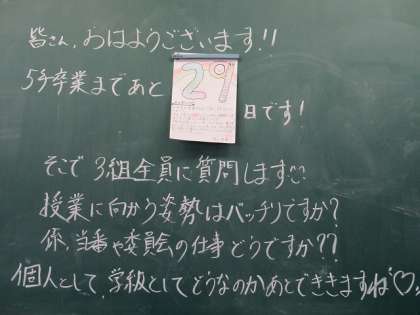 皆さん、おはようございます!!
卒業まであと
29
日です!
そこで3組全員に質問します
授業に向かう姿勢はバッチリですか?
係、当番や委員会の仕事どうですか??
個人として、学級としてどうなのかあとできききますね♡